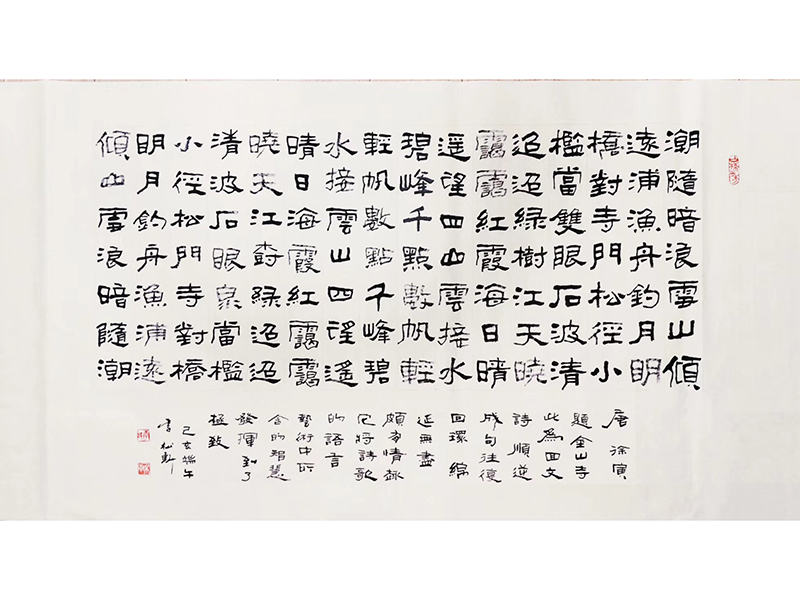 潮隨暗浪雪山傾
遠浦漁舟釣月明
橋對寺門松徑小
檻當雙眼石波清
迢迢綠樹江天曉
靄靄紅霞海日晴
遙望四山雲接水
碧峰千點數帆輕
輕帆數點千峰碧
水接雲山四望遙
晴日海霞紅靄靄
曉天江樹綠迢迢
清波石眼泉當檻
小徑松門寺對橋
明月釣舟漁浦遠
傾山雪浪暗隨潮
唐 徐寅
題金山寺
此為回文
詩順逆
成句往復
回環綿
延無盡
頗有情趣
它將詩歌
的語言
藝術中所
含的智慧
發揮到了
極致
己亥端午